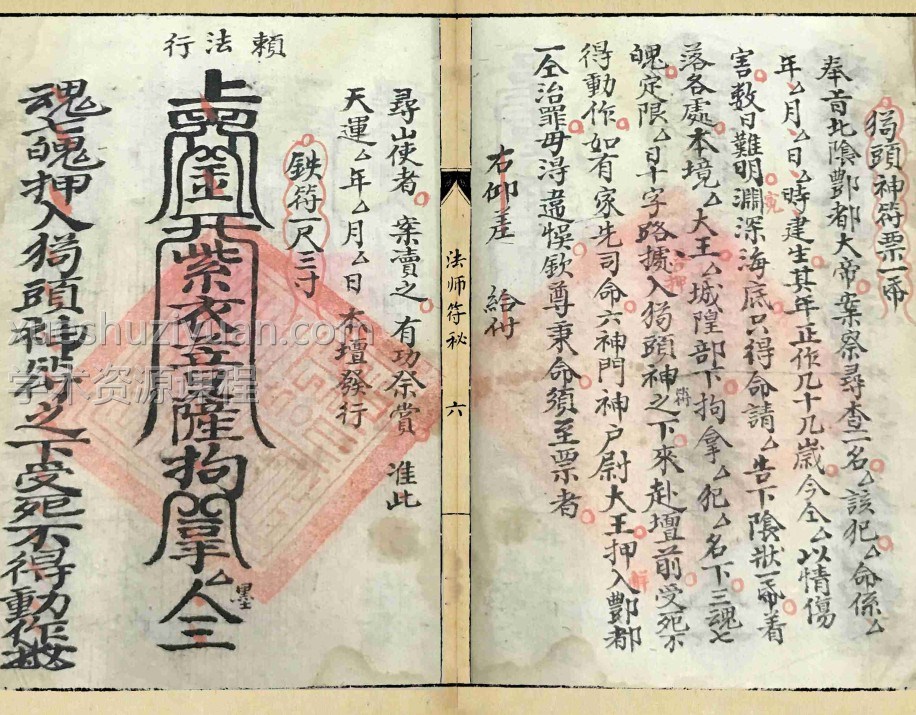 猖頭神符票一帋
奉旨北陰酆都大帝案祭尋查一名厶該犯厶命係厶
年厶月厶日厶時建生其年正作几十几歲今仝厶以情傷
害数日難明淵深海底只得命請厶告下陰狀一帋着
落各處本境厶大王厶城隍部下拘拿厶犯厶名下三魂七
魄定限厶日十字路攄入猖頭神符之下來赴壇前受死不
得動作如有家先司命六神門神户尉大王押入酆都
一仝治罪毋得違悮欽尊秉命須至票者
右仰差 給付
尋山使者 案賣之 有功祭賞 准此
天運厶年厶月厶日 本壇發行
鉄符一尺三寸
頼法行
金 紫衣 隆拘 拿厶人三
墨
魂七魄押入猖頭神符之下受死不得動作
法师符秘 六
xueshuziyuan.com
学术资源课程